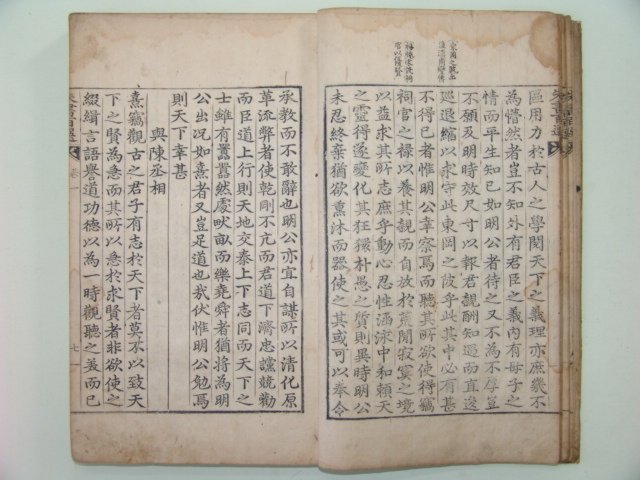 東岡之陂出
後漢周燮傳
官以優賢
區用力於古人之學閱天下之義理亦庶幾不
為懵然者豈不知外有君臣之義內有母子之
情而平生知己如明公者待之又不為不厚豈
不願及明時效尺寸以報君親酬知遇而直逡
巡退縮以求守此東岡之陂乎此其中必有甚
不得已者惟明公幸察焉而聽其所欲使得竊
祠官之祿以養其親而自放於荒閒寂寞之境
以益求其所志庶乎動心忍性涵泳中和賴天
之靈得遂變化其狂穉朴愚之質則異時明公
未忍終棄猶欲熏沐而器使之其或可以奉令
承教而不敢辭也明公亦宜自謀所以清化原
革流弊者使乾剛不亢而君道下濟忠讜競勸
而臣道上行則天地交泰上下志同而天下之
士雖有囂囂然處畎畝而樂堯舜者猶將為明
公出況如熹者又豈足道也哉伏惟明公勉焉
則天下幸甚
與陳丞相
熹竊觀古之君子有志於天下者莫不以致天
下之賢為急而其所以急於求賢者非欲使之
綴緝言語譽道功德以為一時觀聽之美而已
朱書百選 卷一 七